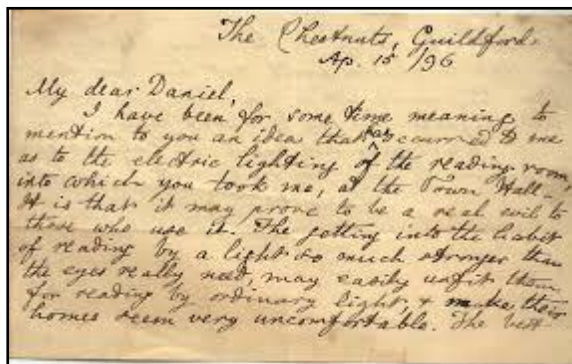 The Chestnuts, Guildford.
Ap. 15 /96
My dear Daniel,
I have been for some time meaning to
mention to you an idea that has occurred to me
as to the electric lighting of the reading room,
into which you took me, at the Town Hall.
It is that it may prove to be a real evil to
those who use it. The getting into the habit
of reading by a light so much stronger than
the eyes really need may easily unfit them
for reading by ordinary light, & make their
homes seem very uncomfortable. The best